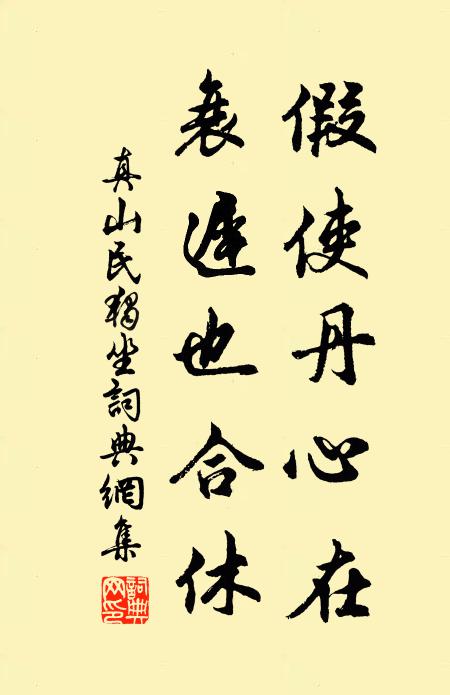 假使丹心在
衰遲也合休
真山民獨坐詞典網集
詞典網印